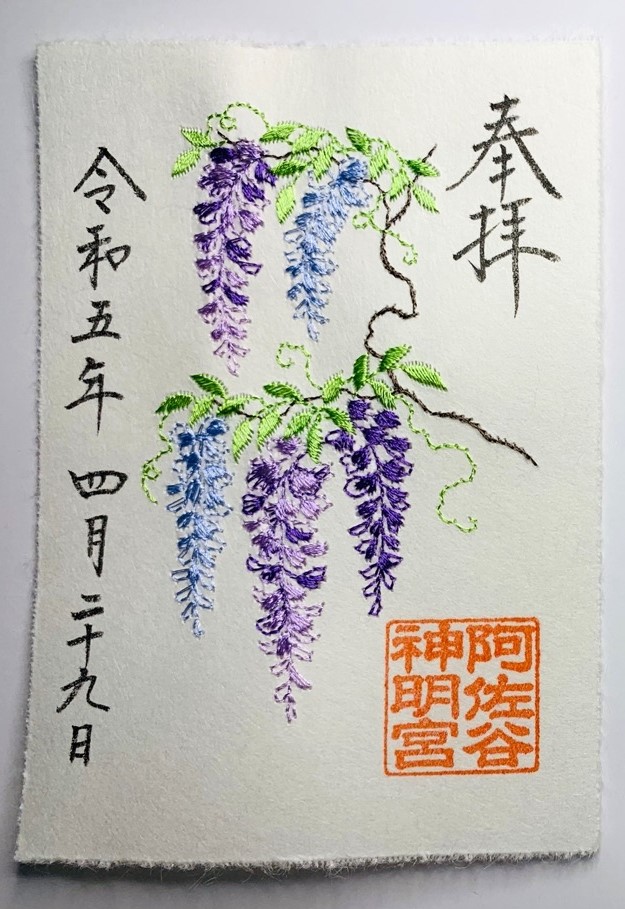 奉拝
阿佐谷
神明宮
令和五年 四月二十九日